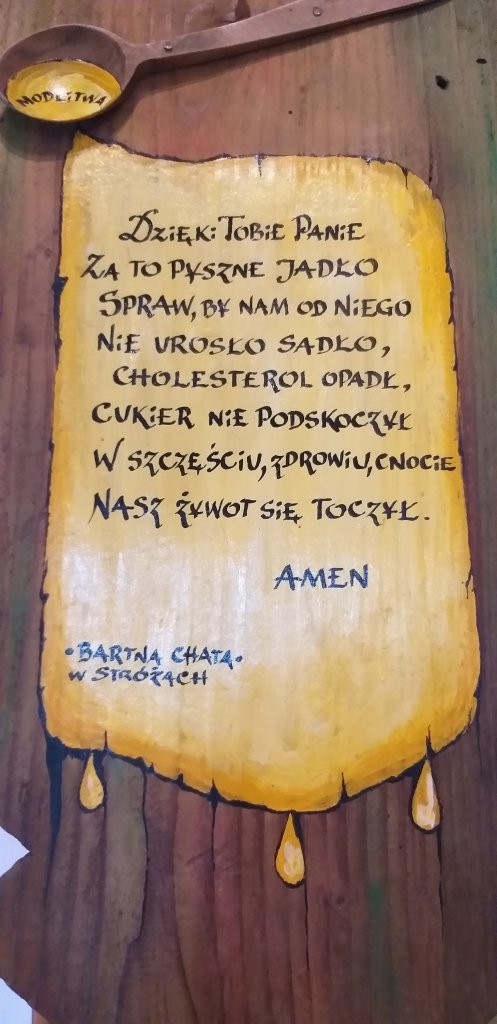 MODLITWA
DZIĘKI TOBIE PANIE
ZA TO PYSZNE JADŁO
SPRAW, BY NAM OD NIEGO
NIE UROSŁO SADŁO,
CHOLESTEROL OPADŁ,
CUKIER NIE PODSKOCZYŁ
W SZCZĘŚCIU, ZDROWIU, CNOCIE
NASZ ŻYWOT SIĘ TOCZYŁ.
AMEN
• BARTNA CHATA •
W STRÓŻACH